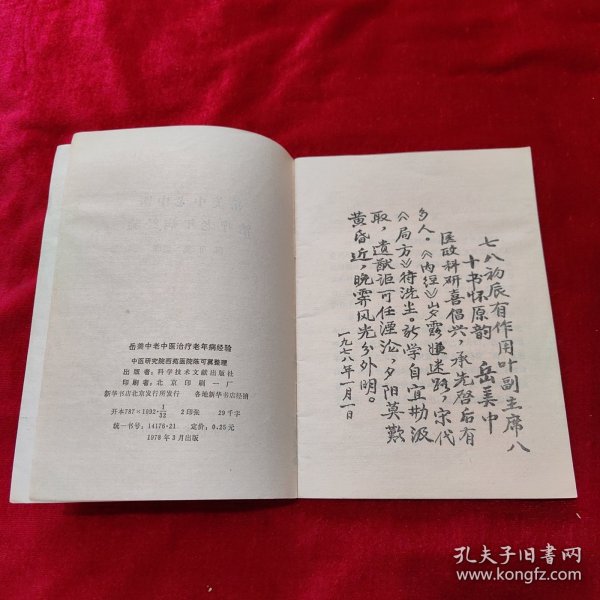 岳美中老中医治疗老年病经验
中医研究院西苑医院陈可冀整理
出版者：科学技术文献出版社
印刷者：北京印刷一厂
新华书店北京发行所发行 各地新华书店经销
开本787×1092·1/32 2印张 29千字
统一书号：14176·21 定价：0.25元
1978年3月出版
七八初辰有作用叶副主席八
十书怀原韵 岳美中
医政科研喜倡兴，承先启后有
多人。《内经》岁露嫌迷路，宋代
《局方》待洗尘。於学自宜勤汲
取，遗猷讵可任湮沦。夕阳莫叹
黄昏近，晚霁风光分外明。
一九七八年一月一日
孔夫子旧书网
www.kongfz.com